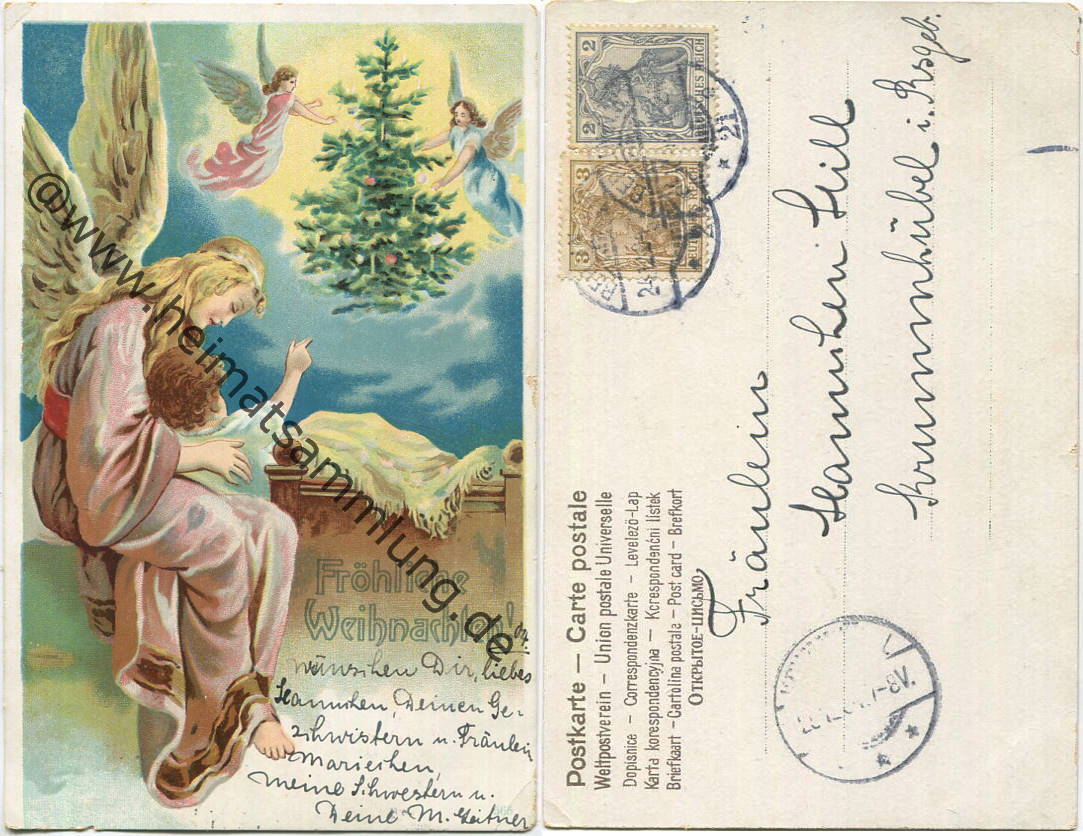 @www.heimatsammlung.de
Fröhliche
Weihnachten!
04.
wünschen Dir, liebes
Hannchen, Deinen Ge-
schwistern u. Fräulein
Mariechen,
meine Schwestern u.
Deine M. Zeitner
2 2
DEUTSCHES REICH
3 3
24.12.
21
Postkarte — Carte postale
Weltpostverein — Union postale Universelle
Dopisnice — Correspondenzkarte — Levelező-Lap
Karta korespondencyjna — Korespondenční lístek
Briefkaart — Cartolina postala — Post card — Brefkort
ОТКРЫТОЕ ПИСЬМО.
Fräulein
Hannchen
Krummhübel i. Rsgeb.
7-8V.